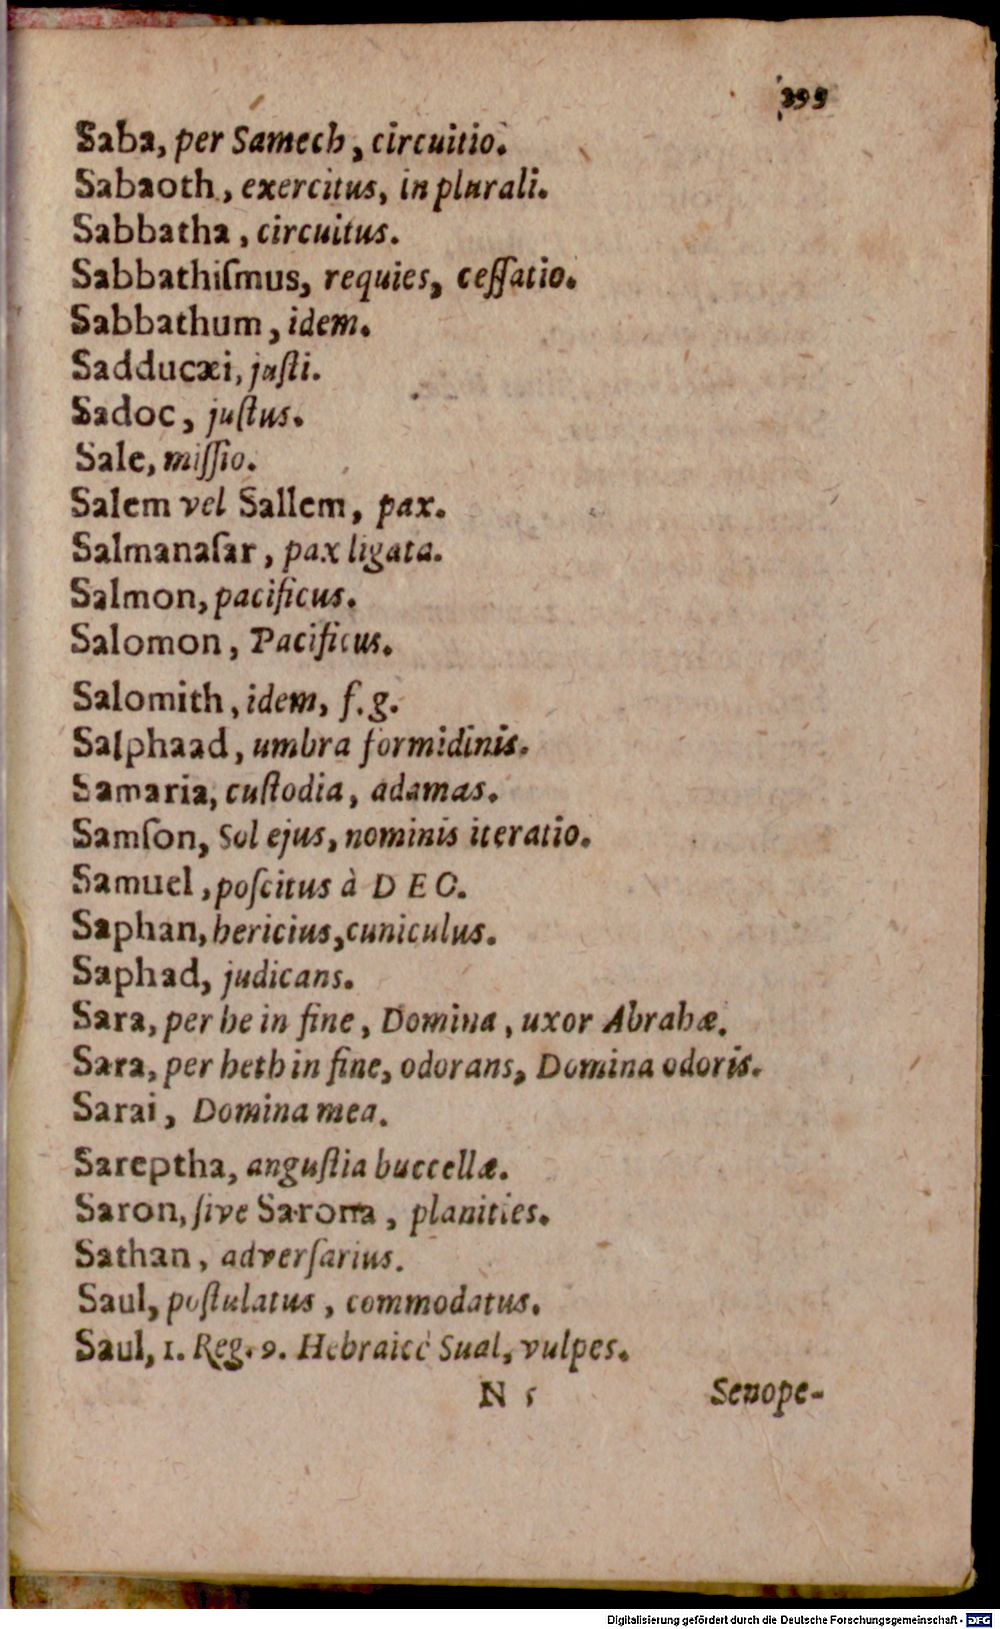 399
Saba, per Samech, circuitio.
Sabaoth, exercitus, in plurali.
Sabbatha, circuitus.
Sabbathiſmus, requies, ceſſatio.
Sabbathum, idem.
Sadducæi, juſti.
Sadoc, juſtus.
Sale, miſſio.
Salem vel Sallem, pax.
Salmanaſar, pax ligata.
Salmon, pacificus.
Salomon, Pacificus.
Salomith, idem, f. g.
Salphaad, umbra formidinis.
Samaria, cuſtodia, adamas.
Samſon, Sol ejus, nominis iteratio.
Samuel, poſcitus à DEO.
Saphan, hericius, cuniculus.
Saphad, judicans.
Sara, per he in fine, Domina, uxor Abrahæ.
Sara, per heth in fine, odorans, Domina odoris.
Sarai, Domina mea.
Sareptha, anguſtia buccellæ.
Saron, ſive Sarona, planities.
Sathan, adverſarius.
Saul, poſtulatus, commodatus.
Saul, 1. Reg. 9. Hebraicè Sual, vulpes.
N 5 Senope-
Digitalisierung gefördert durch die Deutsche Forschungsgemeinschaft - DFG